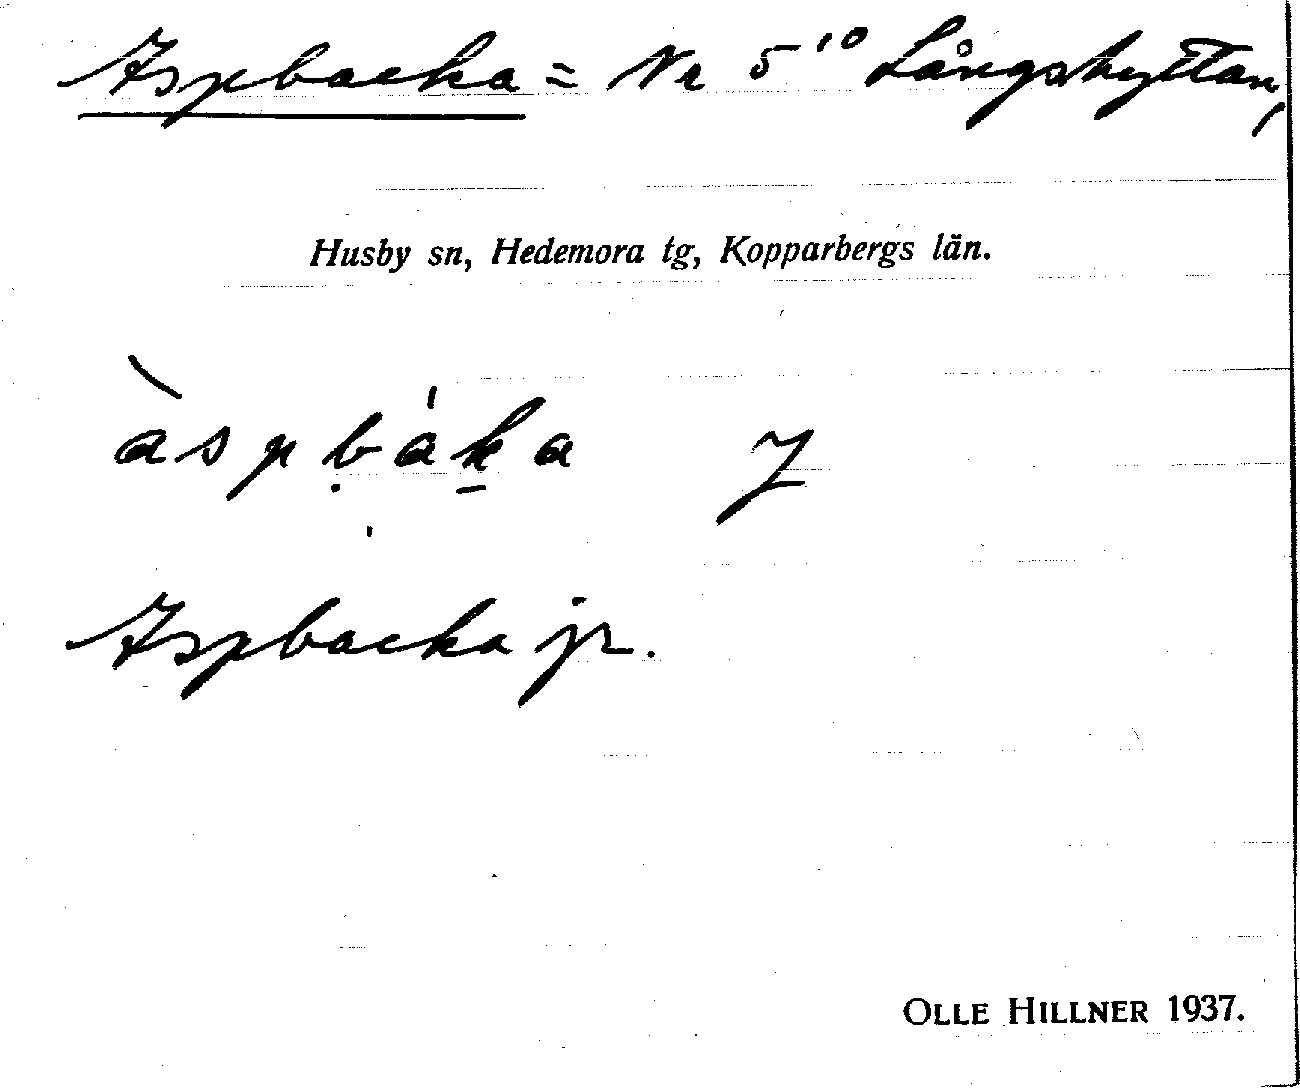 Aspbacka = Nr 5¹⁰ Långshyttan,
Husby sn, Hedemora tg, Kopparbergs län.
àspḅáḵa J
Aspbacka jr.
OLLE HILLNER 1937.